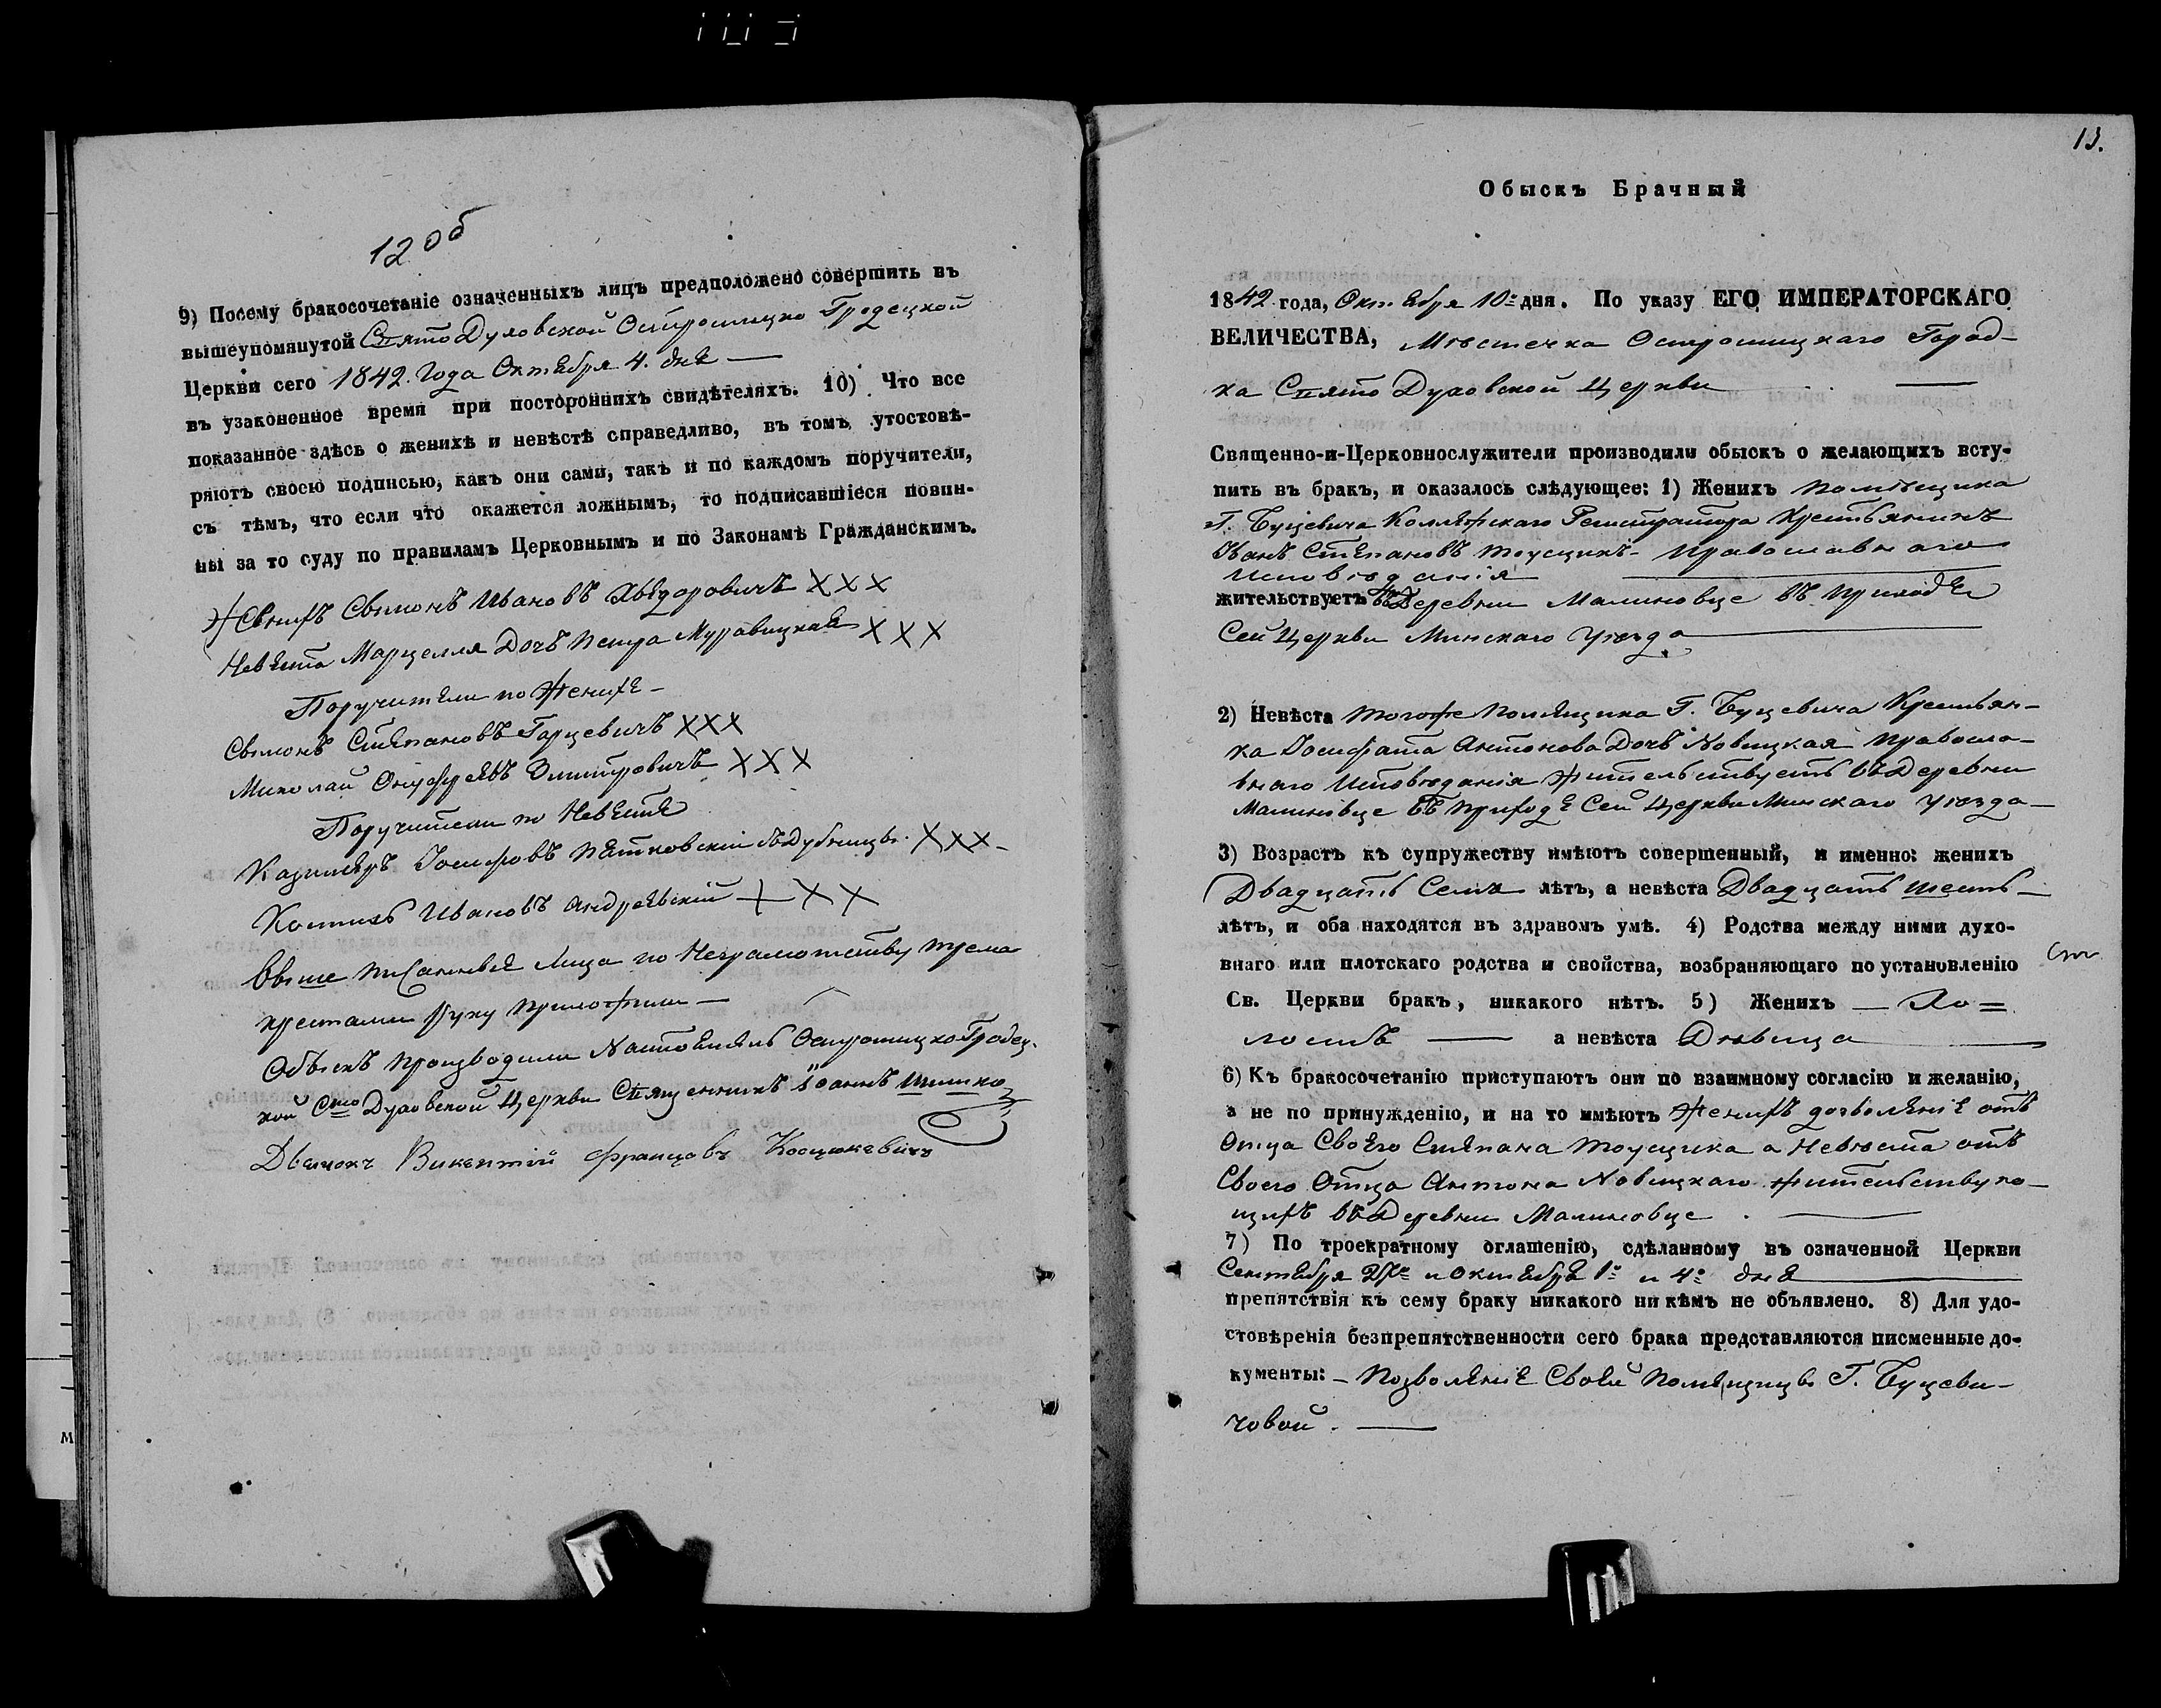 12 об
9) Посему бракосочетаніе означенныхъ лицъ предположено совершить въ
вышеупомянутой Свято Духовской Острошицко Гродецкой
Церкви сего 1842. Года Октебря 4. дня —
въ узаконенное время при постороннихъ свидѣтеляхъ. 10) Что все
показанное здѣсь о женихѣ и невѣстѣ справедливо, въ томъ утостовѣ-
ряютъ своею подписью, какъ они сами, такъ и по каждомъ поручители,
съ тѣмъ, что если что окажется ложнымъ, то подписавшіеся повин-
ны за то суду по правиламъ Церковнымъ и по Законамъ Гражданскимъ.
Женихъ Сымонъ Ивановъ ХХХ
Невеста Марцелля Дочъ Петра Муравицкая ХХХ
Поручители по Женихе –
Сымонъ Степановъ Гарцевичъ ХХХ
Миколай Онуфреевъ Дмитровичъ ХХХ
Поручители по Невесте
Казимеръ Іосифовъ Петковскій ХХХ –
Ивановъ Андреевскій ХХХ
Выше писанные Лица по Неграмотству трема
крестами руку приложили —
Обыскъ производили Настоятель Острошицко Гродец-
кой Сто Духовской Церкви Священникъ Іоаннъ Шишко
Дьячокъ Викентій Францовъ Косцюкевичъ
13.
Обыскъ Брачный
1842 года, Октебря 10 дня. По указу ЕГО ИМПЕРАТОРСКАГО
ВЕЛИЧЕСТВА, Мѣстечка Острошицкаго Город-
ка Свято Духовской Церкви —
Священно-и-Церковнослужители производили обыскъ о желающихъ всту-
пить въ бракъ, и оказалось слѣдующее: 1) Женихъ помѣщика
Г. Буцевича Коллежскаго Регистратора Крестьянинъ
Иванъ Степановъ Тоусцикъ – православнаго
исповѣданія
жительствуетъ въ Деревни Малиновце въ приходе
Сей Церкви Минскаго уѣзда —
2) Невѣста тогоже помещика Г. Буцевича Крестьян-
ка Іосифата Антонова Дочъ Новицкая правосла-
внаго исповѣданія жительствуетъ въ Деревни
Малиновце въ приходе Сей Церкви Минскаго уѣзда —
3) Возрастъ къ супружеству имѣютъ совершенный, и именно: женихъ
Двадцать Семи лѣтъ, а невѣста Двадцать шесть –
лѣтъ, и оба находятся въ здравомъ умѣ. 4) Родства между ними духо-
внаго или плотскаго родства и свойства, возбраняющаго по установленію
Св. Церкви бракъ, никакого нѣтъ. 5) Женихъ — Хо=
лостъ — а невѣста Дѣвица —
6) Къ бракосочетанію приступаютъ они по взаимному согласію и желанію,
а не по принужденію, и на то имѣютъ Женихъ дозволеніе отъ
Отца Своего Степана Тоусцика а Невѣста отъ
Своего Отца Антона Новицкаго жительствую-
щихъ въ Деревни Малиновце. —
7) По троекратному оглашенію, сдѣланному въ означенной Церкви
Сентебря 27 и Октебря 1 и 4 дня —
препятствія къ сему браку никакого никѣмъ не объявлено. 8) Для удо-
стовѣренія безпрепятственности сего брака представляются писменные до-
кументы: – Позволеніе Своей Помещицы Г. Буцеви-
човой. —